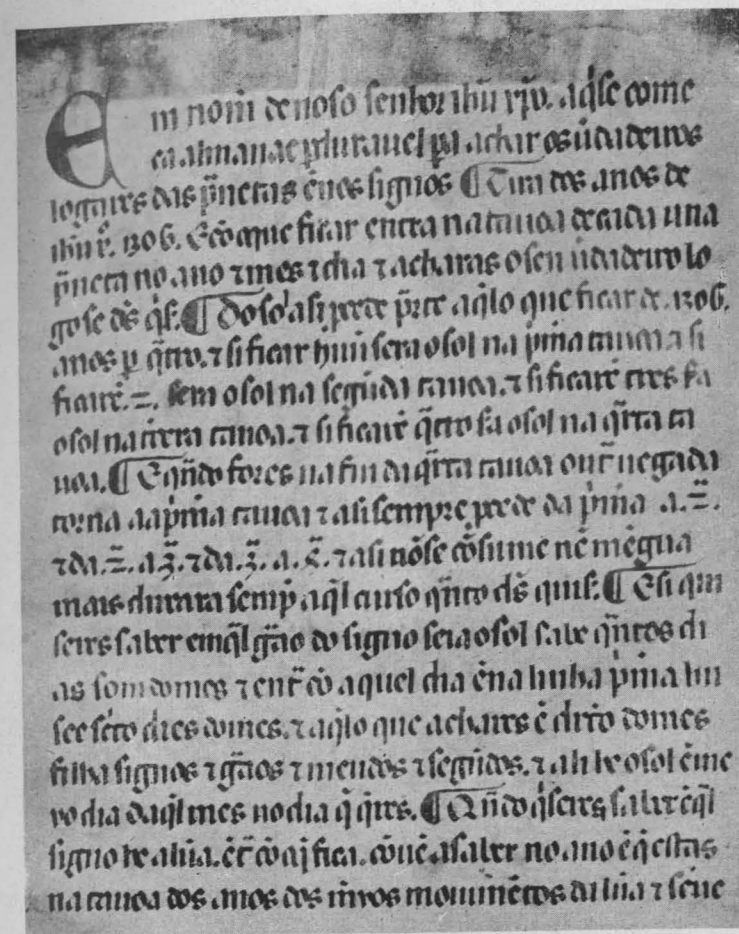 Em nom̃ de noso senhor ihũ xp̃o. aq̃ se come
ça almanac p̃durauel pa achar os ũdadeiros
logares das p̃netas ẽnos signos ¶ Tira dos anos de
ihũ x̃. 1306. E cõ o que ficar entra na tauoa de cada una
p̃neta no ano ⁊ mes ⁊ dia ⁊ acharas o seu ũdadeiro lo
go se d̃s q̃s. ¶ Do sol asi parte aq̃lo que ficar de .1306.
anos p̱ q̃tro. ⁊ si ficar huũ sera o sol na p̃ma tauoa ⁊ si
ficarẽ .2. sera o sol na segũda tauoa. ⁊ si ficarẽ tres sa
o sol na tercra tauoa. ⁊ si ficarẽ q̃tro sa o sol na q̃rta ta
uoa. ¶ E q̃ndo fores na fin da q̃rta tauoa out̃ uegada
torna aa p̃ma tauoa ⁊ asi sempre da p̃ma a .2̃.
⁊ da .2̃. a 3̃. ⁊ da .3̃. a .4̃. ⁊ asi nõ se cõsume nẽ mẽgua
mais durara semp̃ aq̃l curso q̃nto d̃s quis. ¶ E si qui
seres saber em q̃l g̃ao do signo sera o sol sabe q̃ntos di
as som do mes ⁊ ent̃ cõ aquel dia ẽna linha p̃ma hu
see sc̃to dies do mes. ⁊ aq̃lo que achares ẽ dirto do mes
filha signos ⁊ g̃aos ⁊ meudos ⁊ segũdos. ⁊ ali he o sol ẽ me
yo dia daq̃l mes no dia q̃ q̃res. ¶ Q̃ndo q̃seres saber ẽ q̃l
signo he a lũa. ẽt̃ cõ o q̃ fica. cõuẽ a saber no ano ẽ q̃ estas
na tauoa dos anos dos mouimẽtos da lũa ⁊ scue